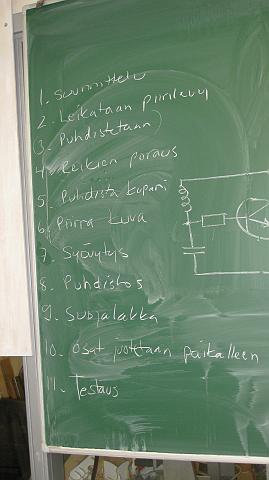 1. Suunnittelu
2. Leikataan piirilevy
3. Puhdistetaan
4. Reikien poraus
5. Puhdista kupari
6. Piirrä kuva
7. Syövytys
8. Puhdistus
9. Suojalakka
10. Osat juotetaan paikalleen
11. Testaus